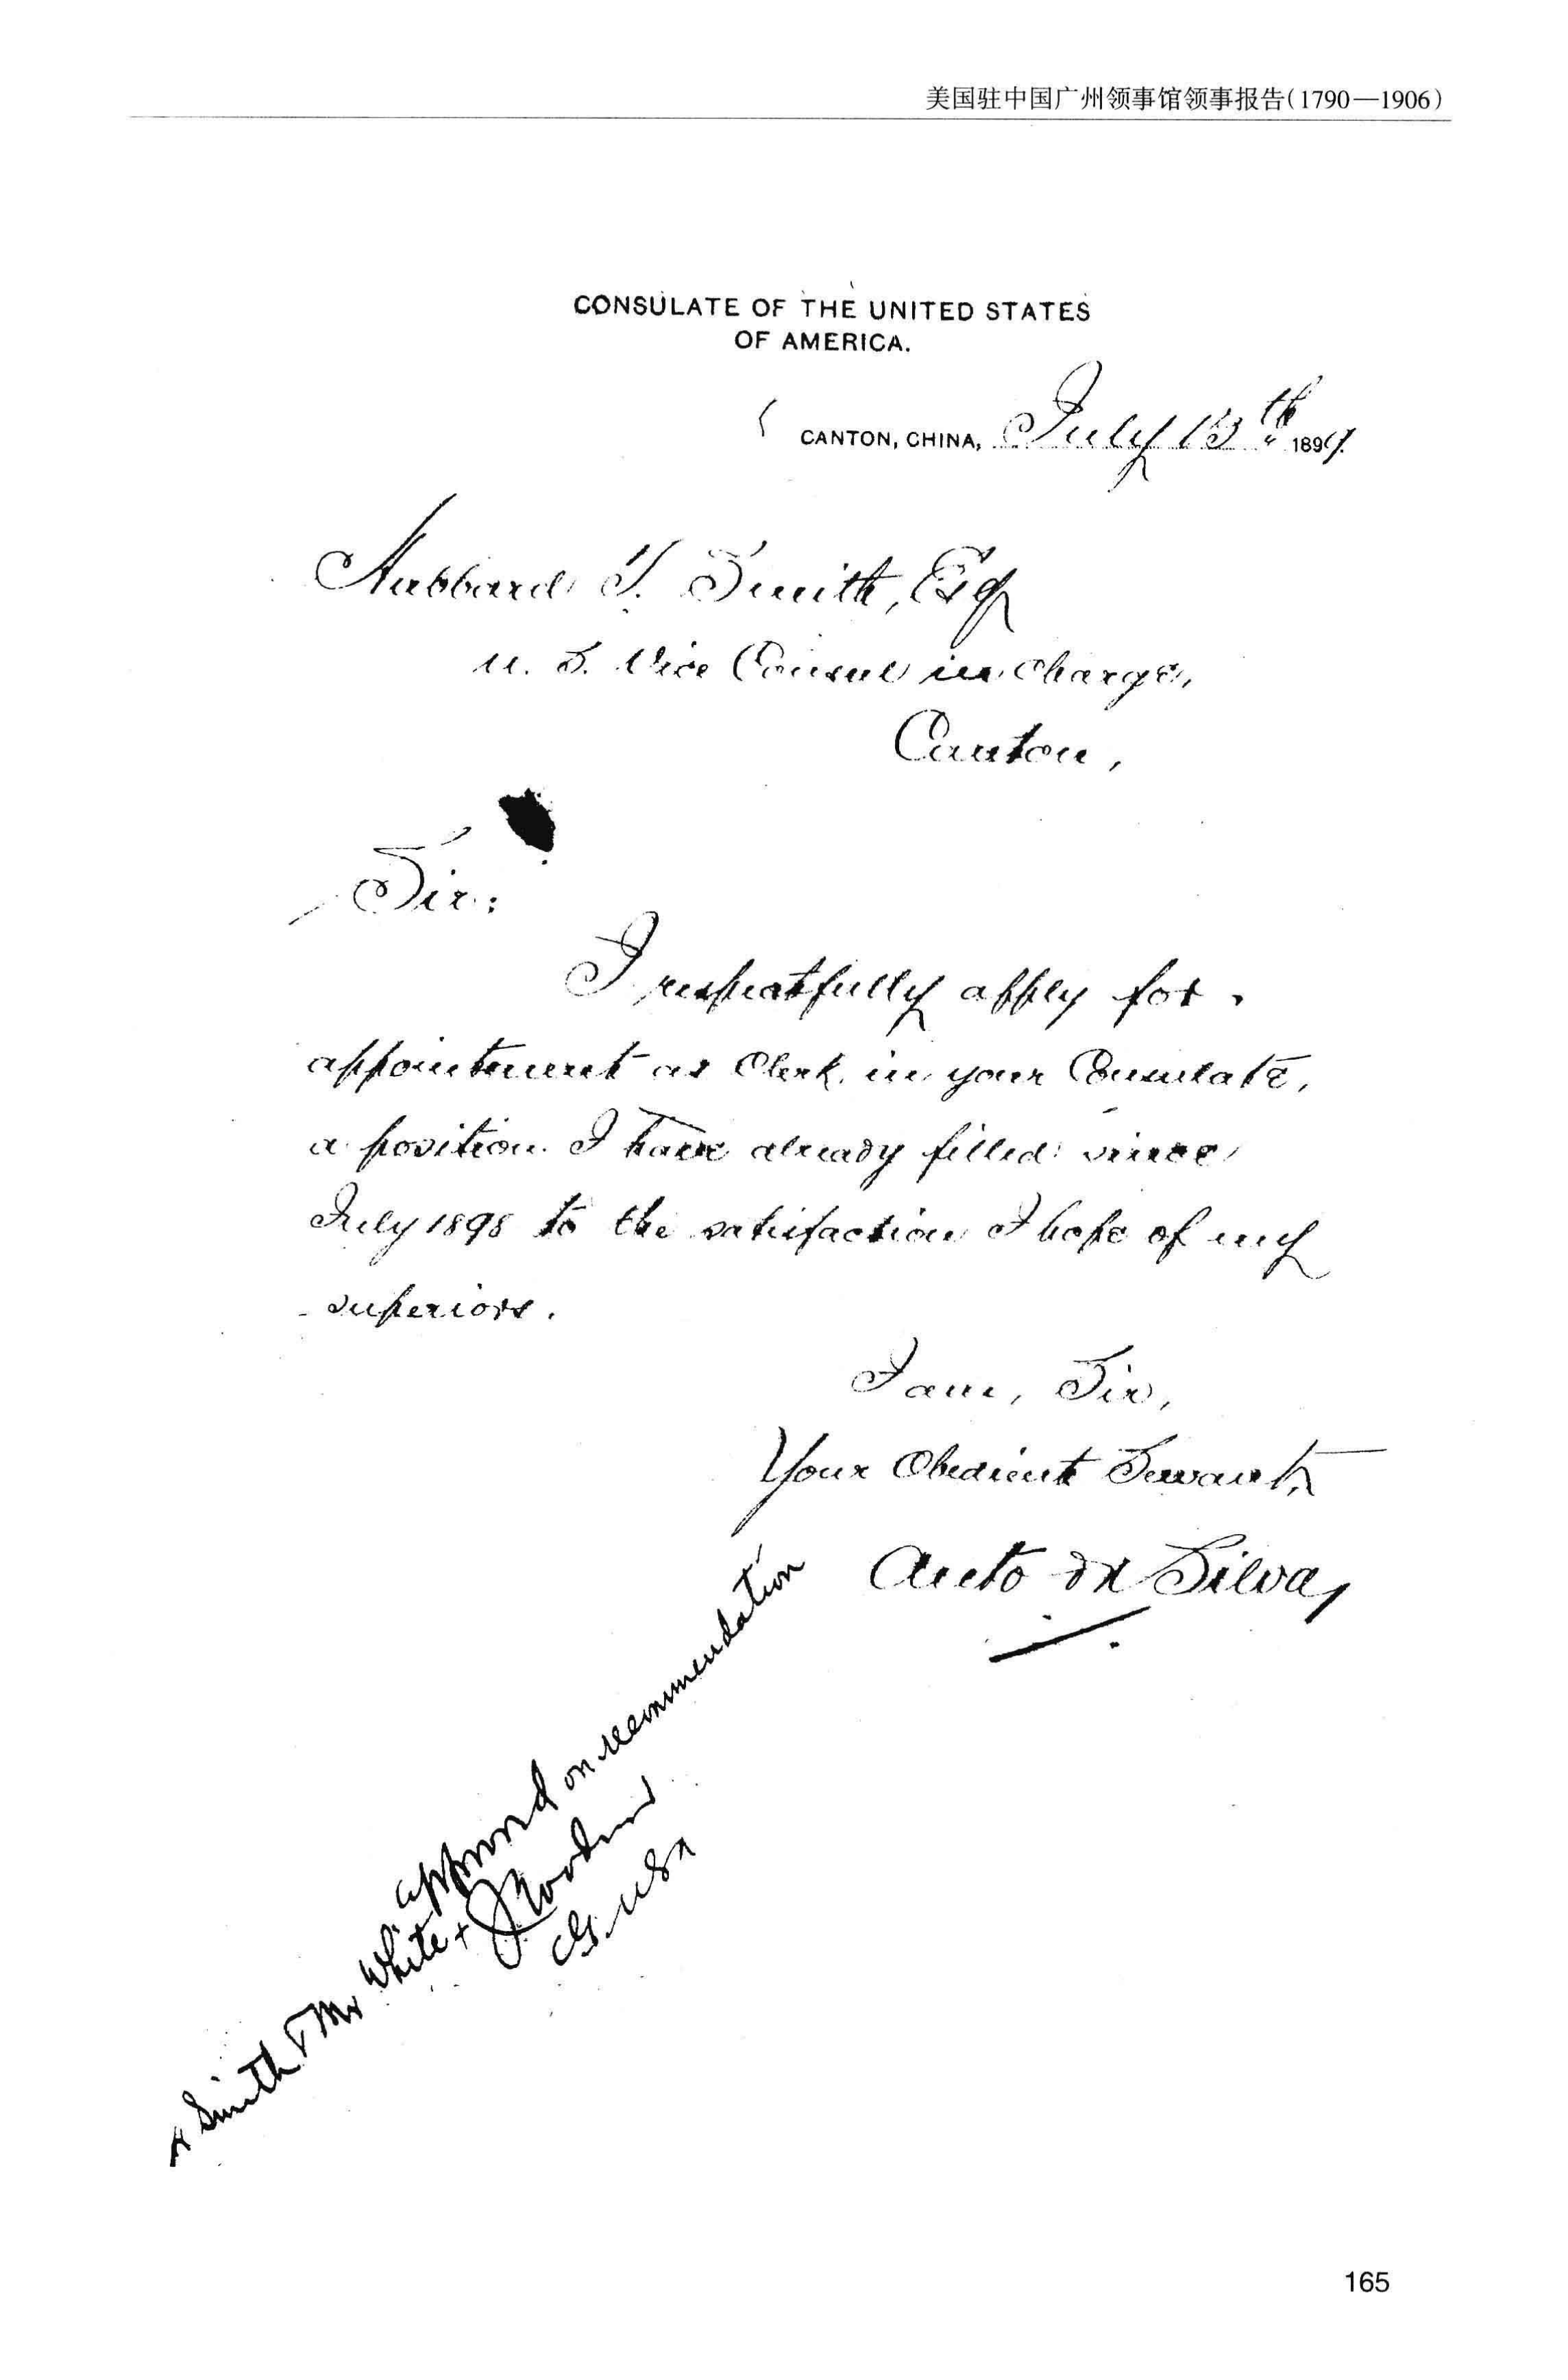 美国驻中国广州领事馆领事报告(1790—1906)
CONSULATE OF THE UNITED STATES
OF AMERICA.
CANTON, CHINA, July 13th 1899.
Hubbard T. Smith, Esq
U. S. Vice Consul in charge,
Canton,
Sir:
I respectfully apply for
appointment as Clerk in your Consulate,
a position I have already filled since
July 1898 to the satisfaction I hope of my
superiors.
I am, Sir,
Your Obedient Servant,
da Silva
approved on recommendation
Smith & Mr White +
165